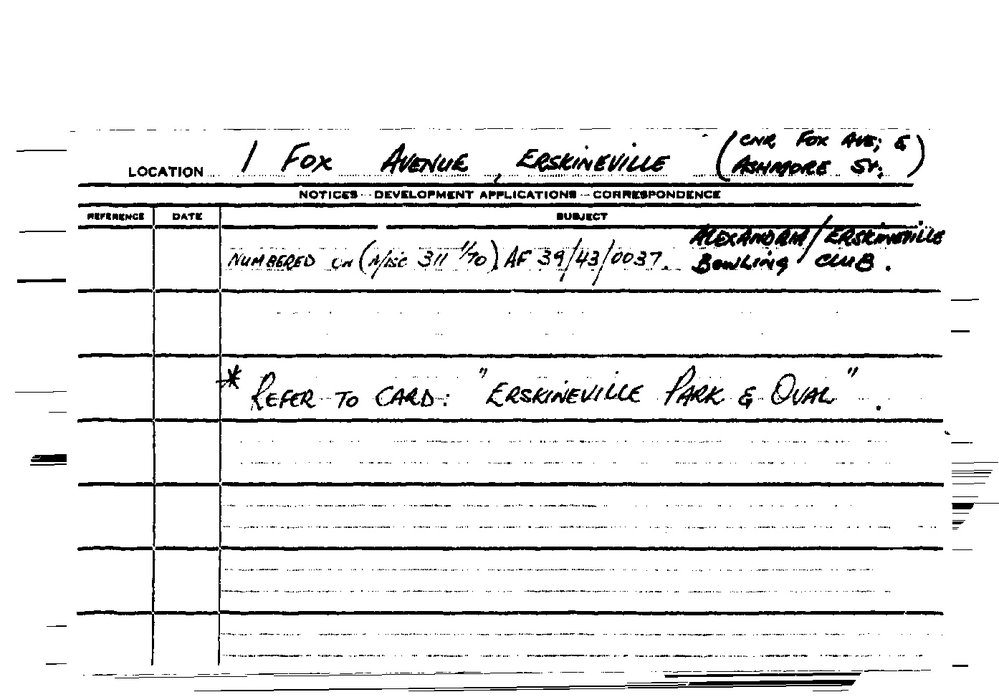 LOCATION 1 FOX AVENUE, ERSKINEVILLE (CNR FOX AVE; &
ASHMORE ST;)
NOTICES - DEVELOPMENT APPLICATIONS - CORRESPONDENCE
REFERENCE DATE SUBJECT
NUMBERED ON (MISC 311 1/70) AF 39/43/0037. ALEXANDRIA/ERSKINEVILLE
BOWLING CLUB.
* REFER TO CARD: "ERSKINEVILLE PARK & OVAL".